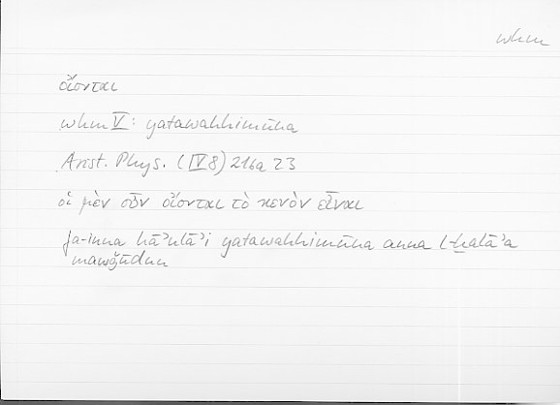 whm
οἴονται
whm V: yatawahhimūna
Arist. Phys. (IV 8) 216a 23
οἱ μὲν οὖν οἴονται τὸ κενὸν εἶναι
fa-inna hāʾulāʾi yatawahhimūna anna l-ḫalāʾa
mawǧūdun